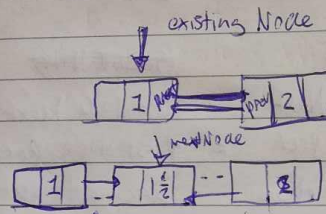 existing Node
1 prev 2
newNode
1 1½ 2